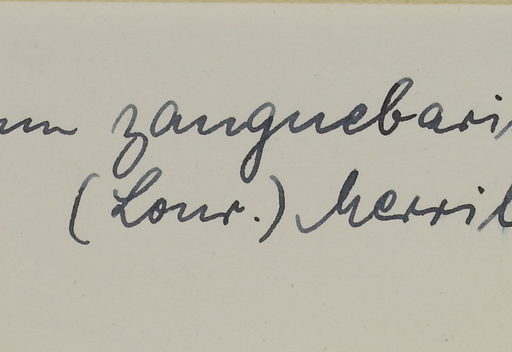 um zanguebari
(Lour.) Merril